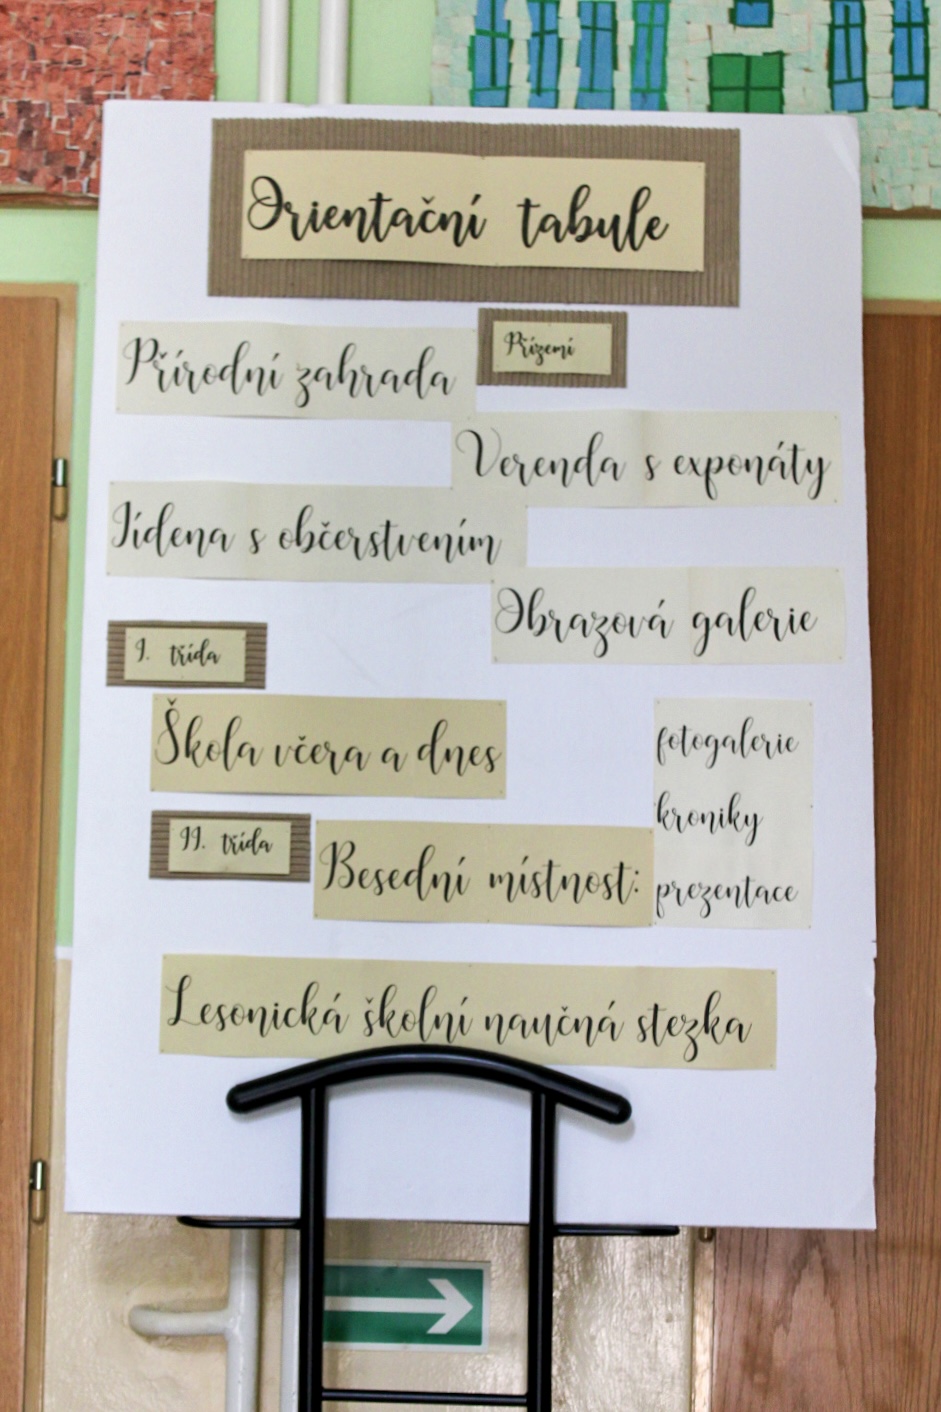 Orientační tabule
Přízemí
Přírodní zahrada
Verenda s exponáty
Jídena s občerstvením
Obrazová galerie
I. třída
Škola včera a dnes
II. třída
Besední místnost:
fotogalerie
kroniky
prezentace
Lesonická školní naučná stezka